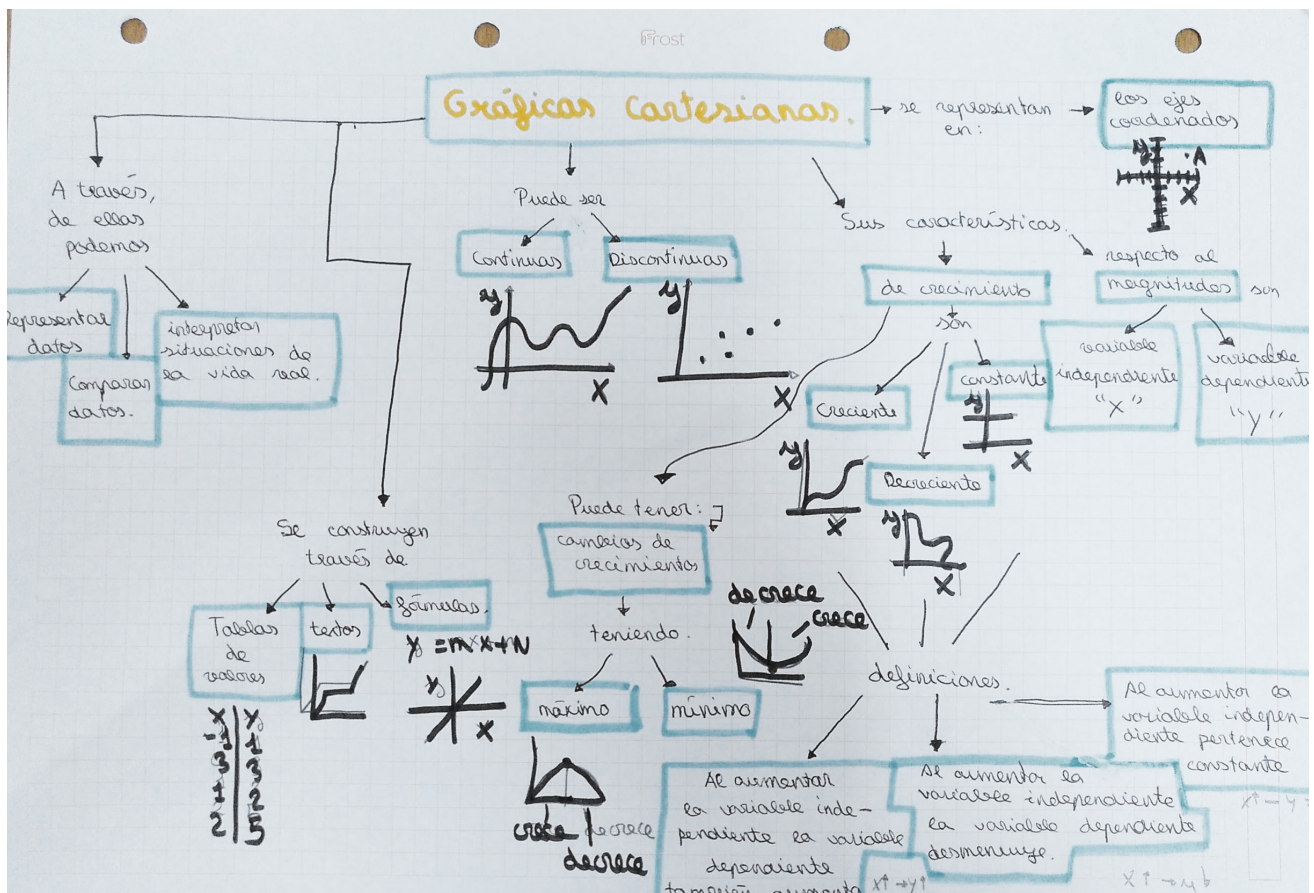 Frost
Gráficas Cartesianas.
se representan
en:
los ejes
coordenados
y
A
X
A través,
de ellas
podemos
representar
datos
Comparar
datos.
interpretar
situaciones de
la vida real.
Puede ser
Continuas
Discontinuas
y
X
y
X
Sus características.
de crecimiento
son
Creciente
y
X
Decreciente
y
X
constante
y
X
respecto al
magnitudes son
variable
independiente
"X"
variable
dependiente
"Y"
Se construyen
través de
Tablas
de
valores
textos
fórmulas.
y = mx+N
y
X
3 3
2 5
Puede tener:
cambios de
crecimientos
teniendo.
máximo
mínimo
crece decrece
decrece
decrece
crece
definiciones.
Al aumentar
la variable inde-
pendiente la variable
dependiente
también aumenta
X↑→y↑
Al aumentar la
variable independiente
la variable dependiente
desmenuye.
X↑→y↓
Al aumentar la
variable indepen-
diente pertenece
constante
X↑→y